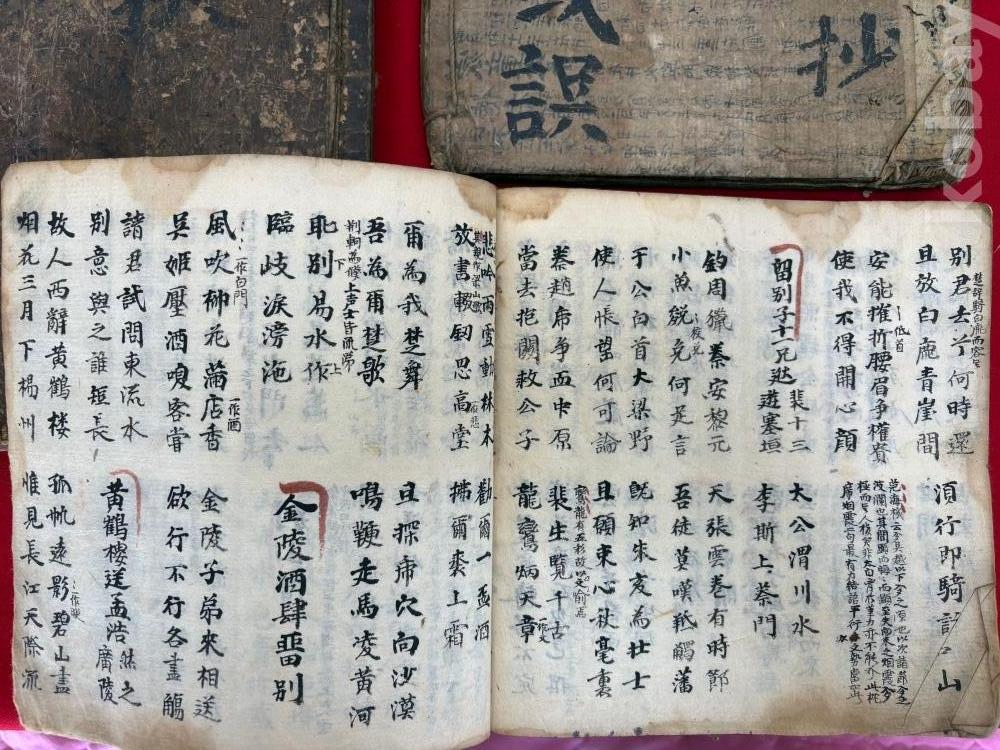 别君去兮何時還
楚辭騎白鹿而容與
且放白鹿青崖間
須行即騎訪〻山
安能摧折腰眉事權貴
低首
使我不得開心顏
留别于十一兄逖裴十三遊塞垣
太公渭川水
李斯上蔡門
釣周獵秦安黎元
小魚鵔兔何足言
天張雲卷有時節
吾徒莫嘆羝觸藩
于公白首大梁野
使人悵望何可論
既知朱亥為壯士
且願束心秋毫裏
秦趙虎爭血中原
當去抱關救公子
裴生覽千古
龍鸞炳天章
一作文
悲吟雨雪動林木
放書輟劍思高堂
勸爾一盃酒
拂爾裘上霜
爾為我楚舞
吾為爾楚歌
且探虎穴向沙漠
鳴鞭走馬凌黃河
恥别易水作
下
上
臨歧淚滂沱
金陵酒肆留别
風吹柳花滿店香
一作白門
一作酒
吳姬壓酒喚客嘗
金陵子弟來相送
欲行不行各盡觴
請君試問東流水
别意與之誰短長
黃鶴樓送孟浩然之廣陵
故人西辭黃鶴樓
烟花三月下楊州
孤帆遠影碧山盡
惟見長江天際流
抄
誤
kobay